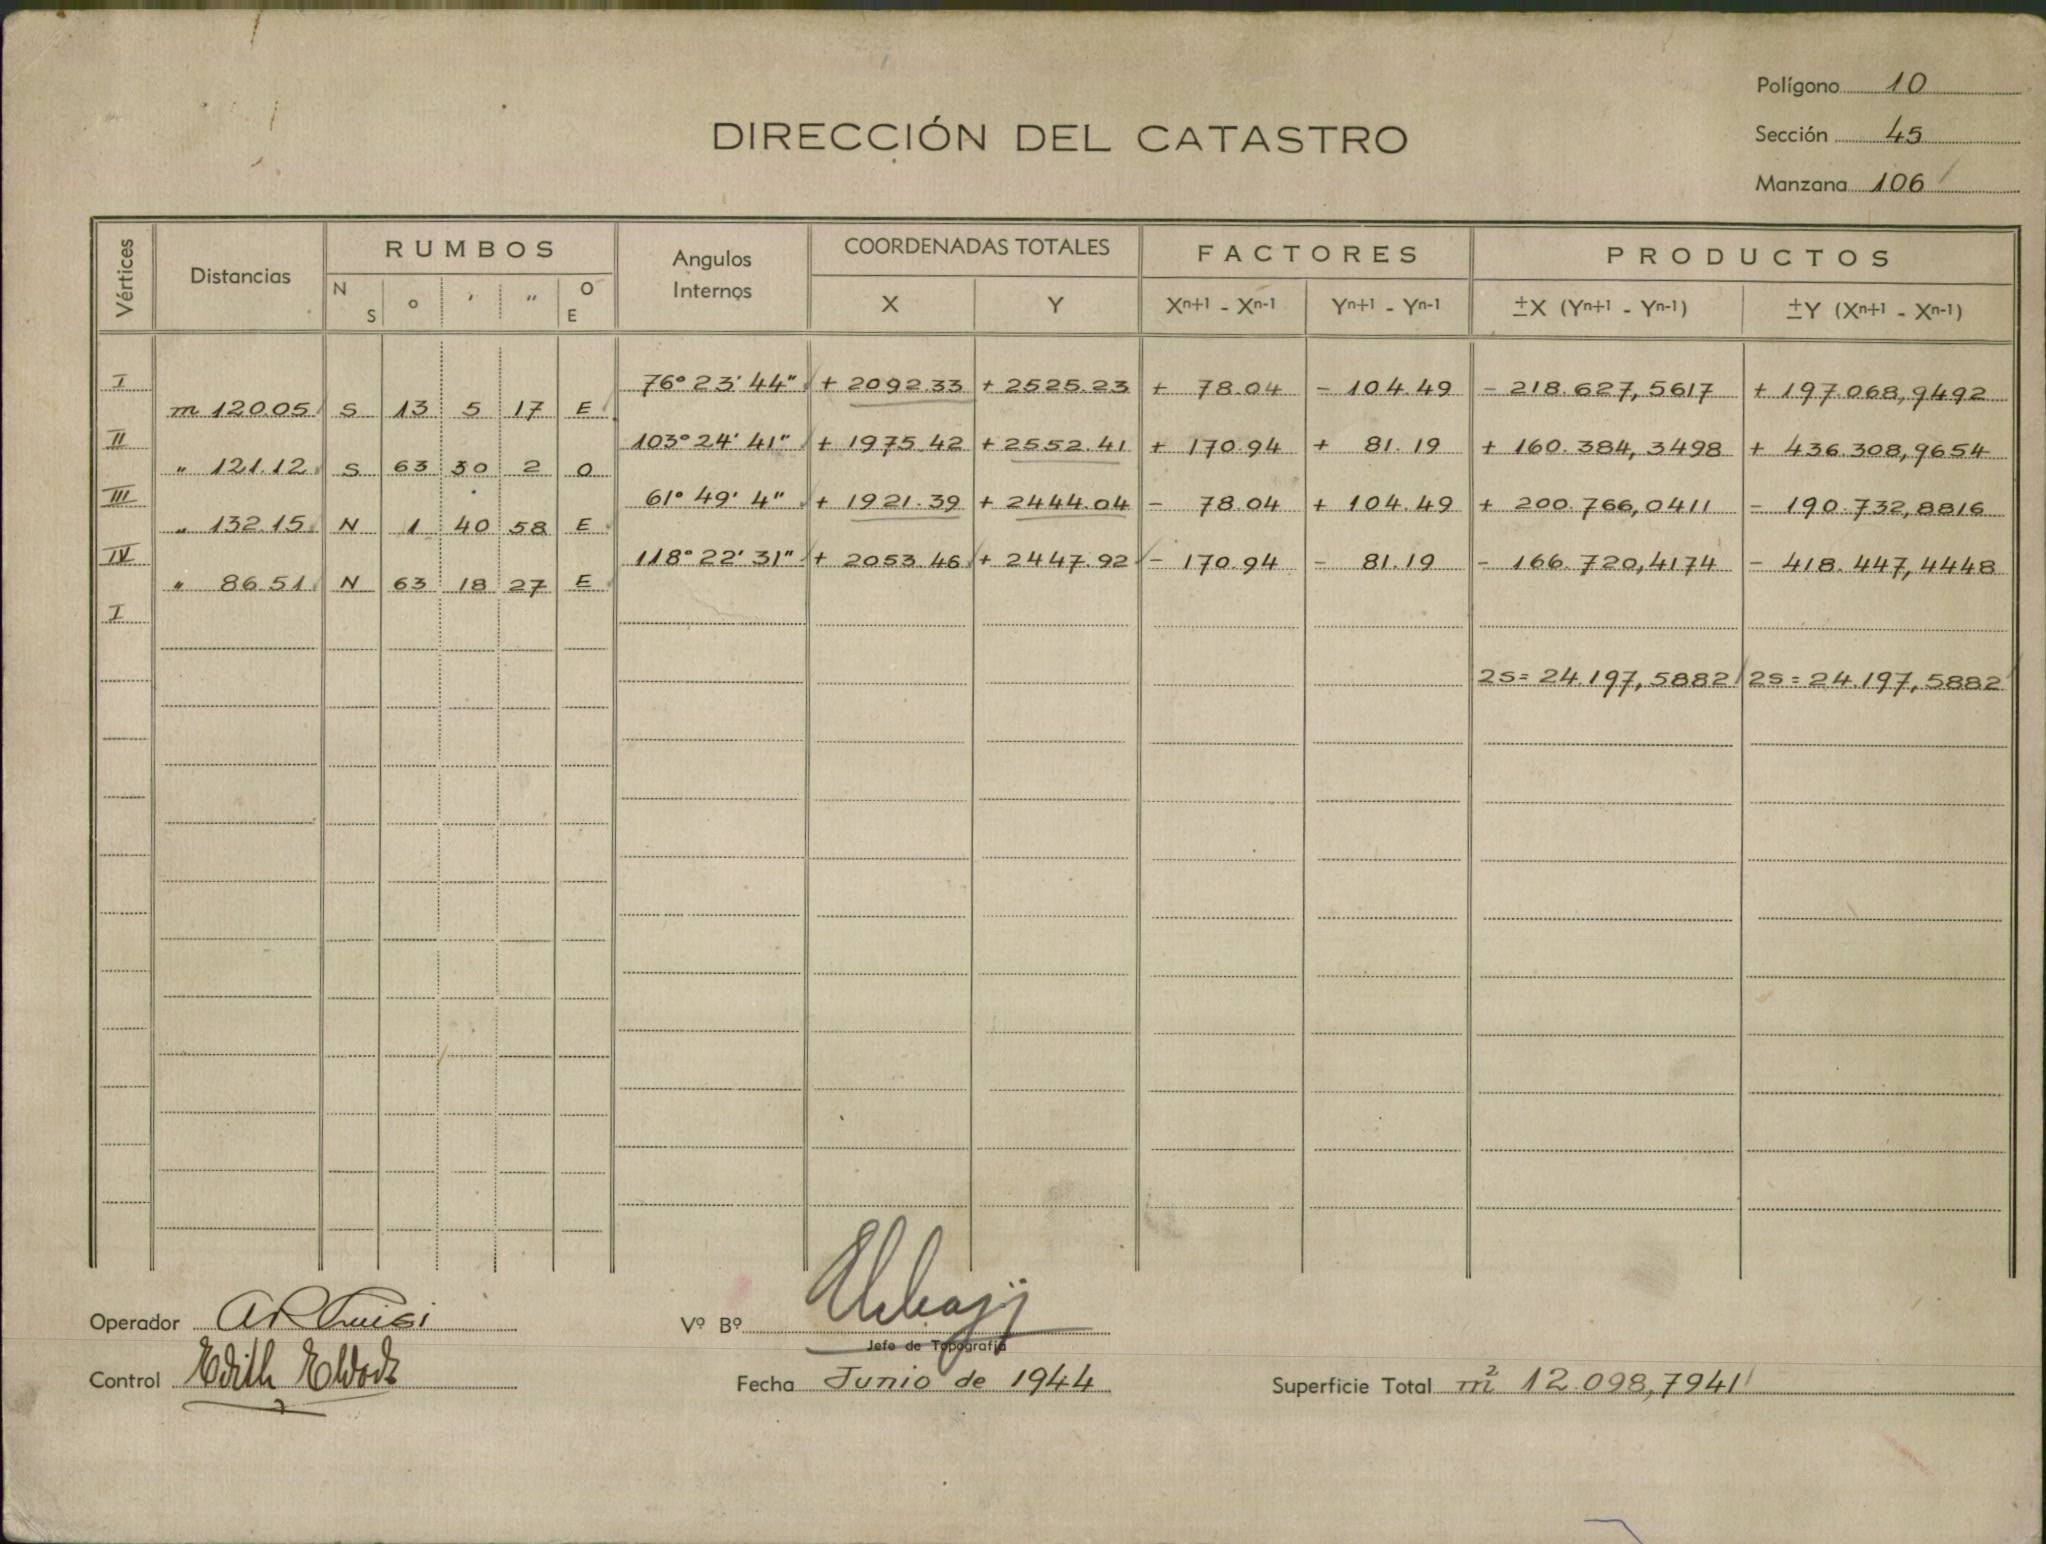 Polígono 10
DIRECCIÓN DEL CATASTRO
Sección 45
Manzana 106
Vértices Distancias RUMBOS Angulos Internos COORDENADAS TOTALES FACTORES PRODUCTOS
N S ° ' " O E X Y Xn+1 - Xn-1 Yn+1 - Yn-1 ±X (Yn+1 - Yn-1) ±Y (Xn+1 - Xn-1)
I 76° 23' 44" + 2092.33 + 2525.23 + 78.04 - 104.49 - 218.627,5617 + 197.068,9492
m 120.05 S 13 5 17 E
II 103° 24' 41" + 1975.42 + 2552.41 + 170.94 + 81.19 + 160.384,3498 + 436.308,9654
" 121.12 S 63 30 2 O
III 61° 49' 4" + 1921.39 + 2444.04 - 78.04 + 104.49 + 200.766,0411 - 190.732,8816
" 132.15 N 1 40 58 E
IV 118° 22' 31" + 2053.46 + 2447.92 - 170.94 - 81.19 - 166.720,4174 - 418.447,4448
" 86.51 N 63 18 27 E
I
2S = 24.197,5882 2S = 24.197,5882
Operador
Vº Bº
Jefe de Topografía
Control Edith
Fecha Junio de 1944
Superficie Total m² 12.098,7941